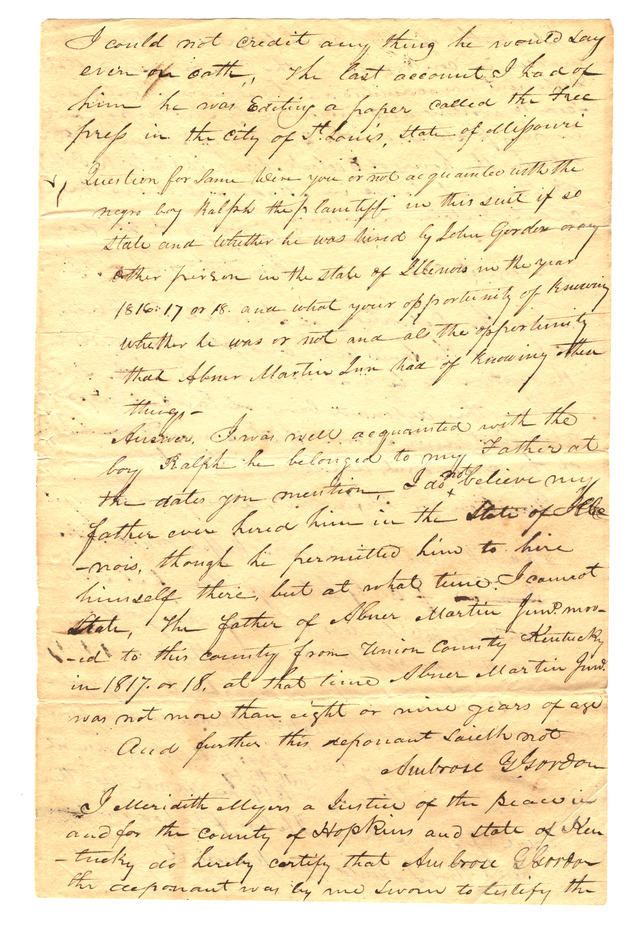 I could not credit any thing he would say
even on oath, The last account I had of
him he was Editing a paper called the Free
press in the city of St. Louis, State of Missouri
Question for Same Were you or not acquainted with the
negro boy Ralph the plaintiff in this suit if so
state and whether he was hired by John Gordon or any
other person in the state of Illinois in the year
1816. 17 or 18. and what your opportunity of knowing
whether he was or not and als the opportunity
that Abner Martin Jun had of knowing them
things –
Answer. I was well acquainted with the
boy Ralph he belonged to my Father at
the dates you mention, I do not believe my
father ever hired him in the State of Illi
-nois, though he permitted him to hire
himself there, but at what time I cannot
State, The father of Abner Martin Junr. mov-
-ed to this county from Union County Kentucky
in 1817. or 18. at that time Abner Martin Junr.
was not more than eight or nine years of age
And further this deponant saieth not
Ambrose G Gordon
I Meridith Meyers a Justice of the peace in
and for the county of Hopkins and state of Ken
-tucky do hereby certify that Ambrose G Gordon
the deponant was by me sworn to testify the